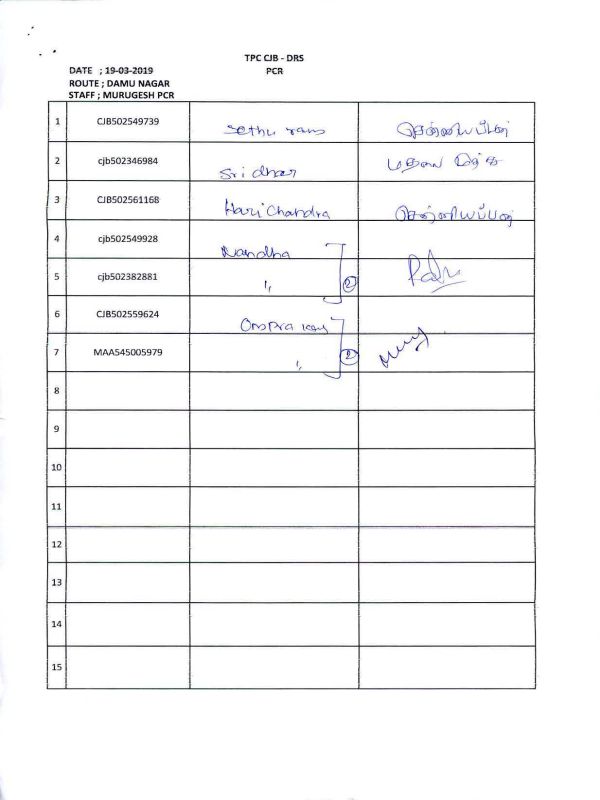 TPC CJB - DRS
DATE ; 19-03-2019 PCR
ROUTE ; DAMU NAGAR
STAFF ; MURUGESH PCR
1 CJB502549739 Sethu ram
2 cjb502346984 Sridhar
3 CJB502561168 Hari Chandra
4 cjb502549928 Nandha
5 cjb502382881 1, 2
6 CJB502559624
7 MAA545005979 1, 2
8
9
10
11
12
13
14
15